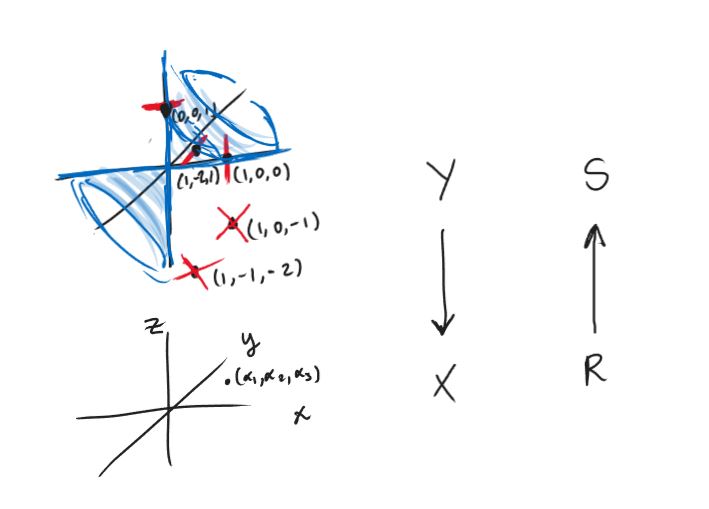 (0,0,1)
(1,-2,1) (1,0,0)
(1,0,-1)
(1,-1,-2)
Z
y
(α₁,α₂,α₃)
x
Y S
X R